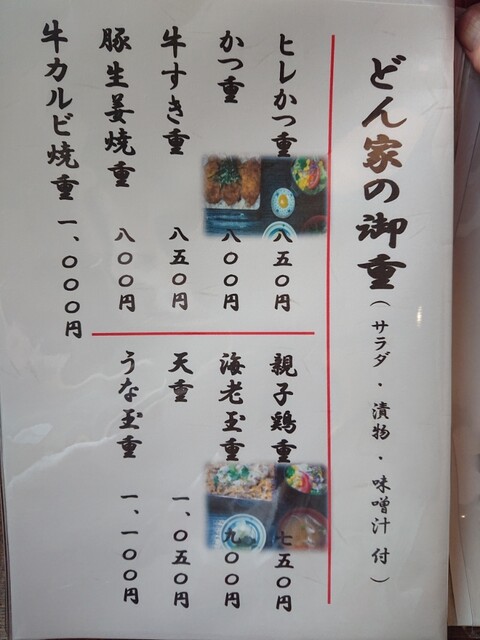 どん家の御重(サラダ・漬物・味噌汁付)
ヒレかつ重 八五〇円
かつ重 八〇〇円
牛すき重 八五〇円
豚生姜焼重 八〇〇円
牛カルビ焼重 一、〇〇〇円
親子鶏重 七五〇円
海老玉重 九〇〇円
天重 一、〇五〇円
うな玉重 一、一〇〇円